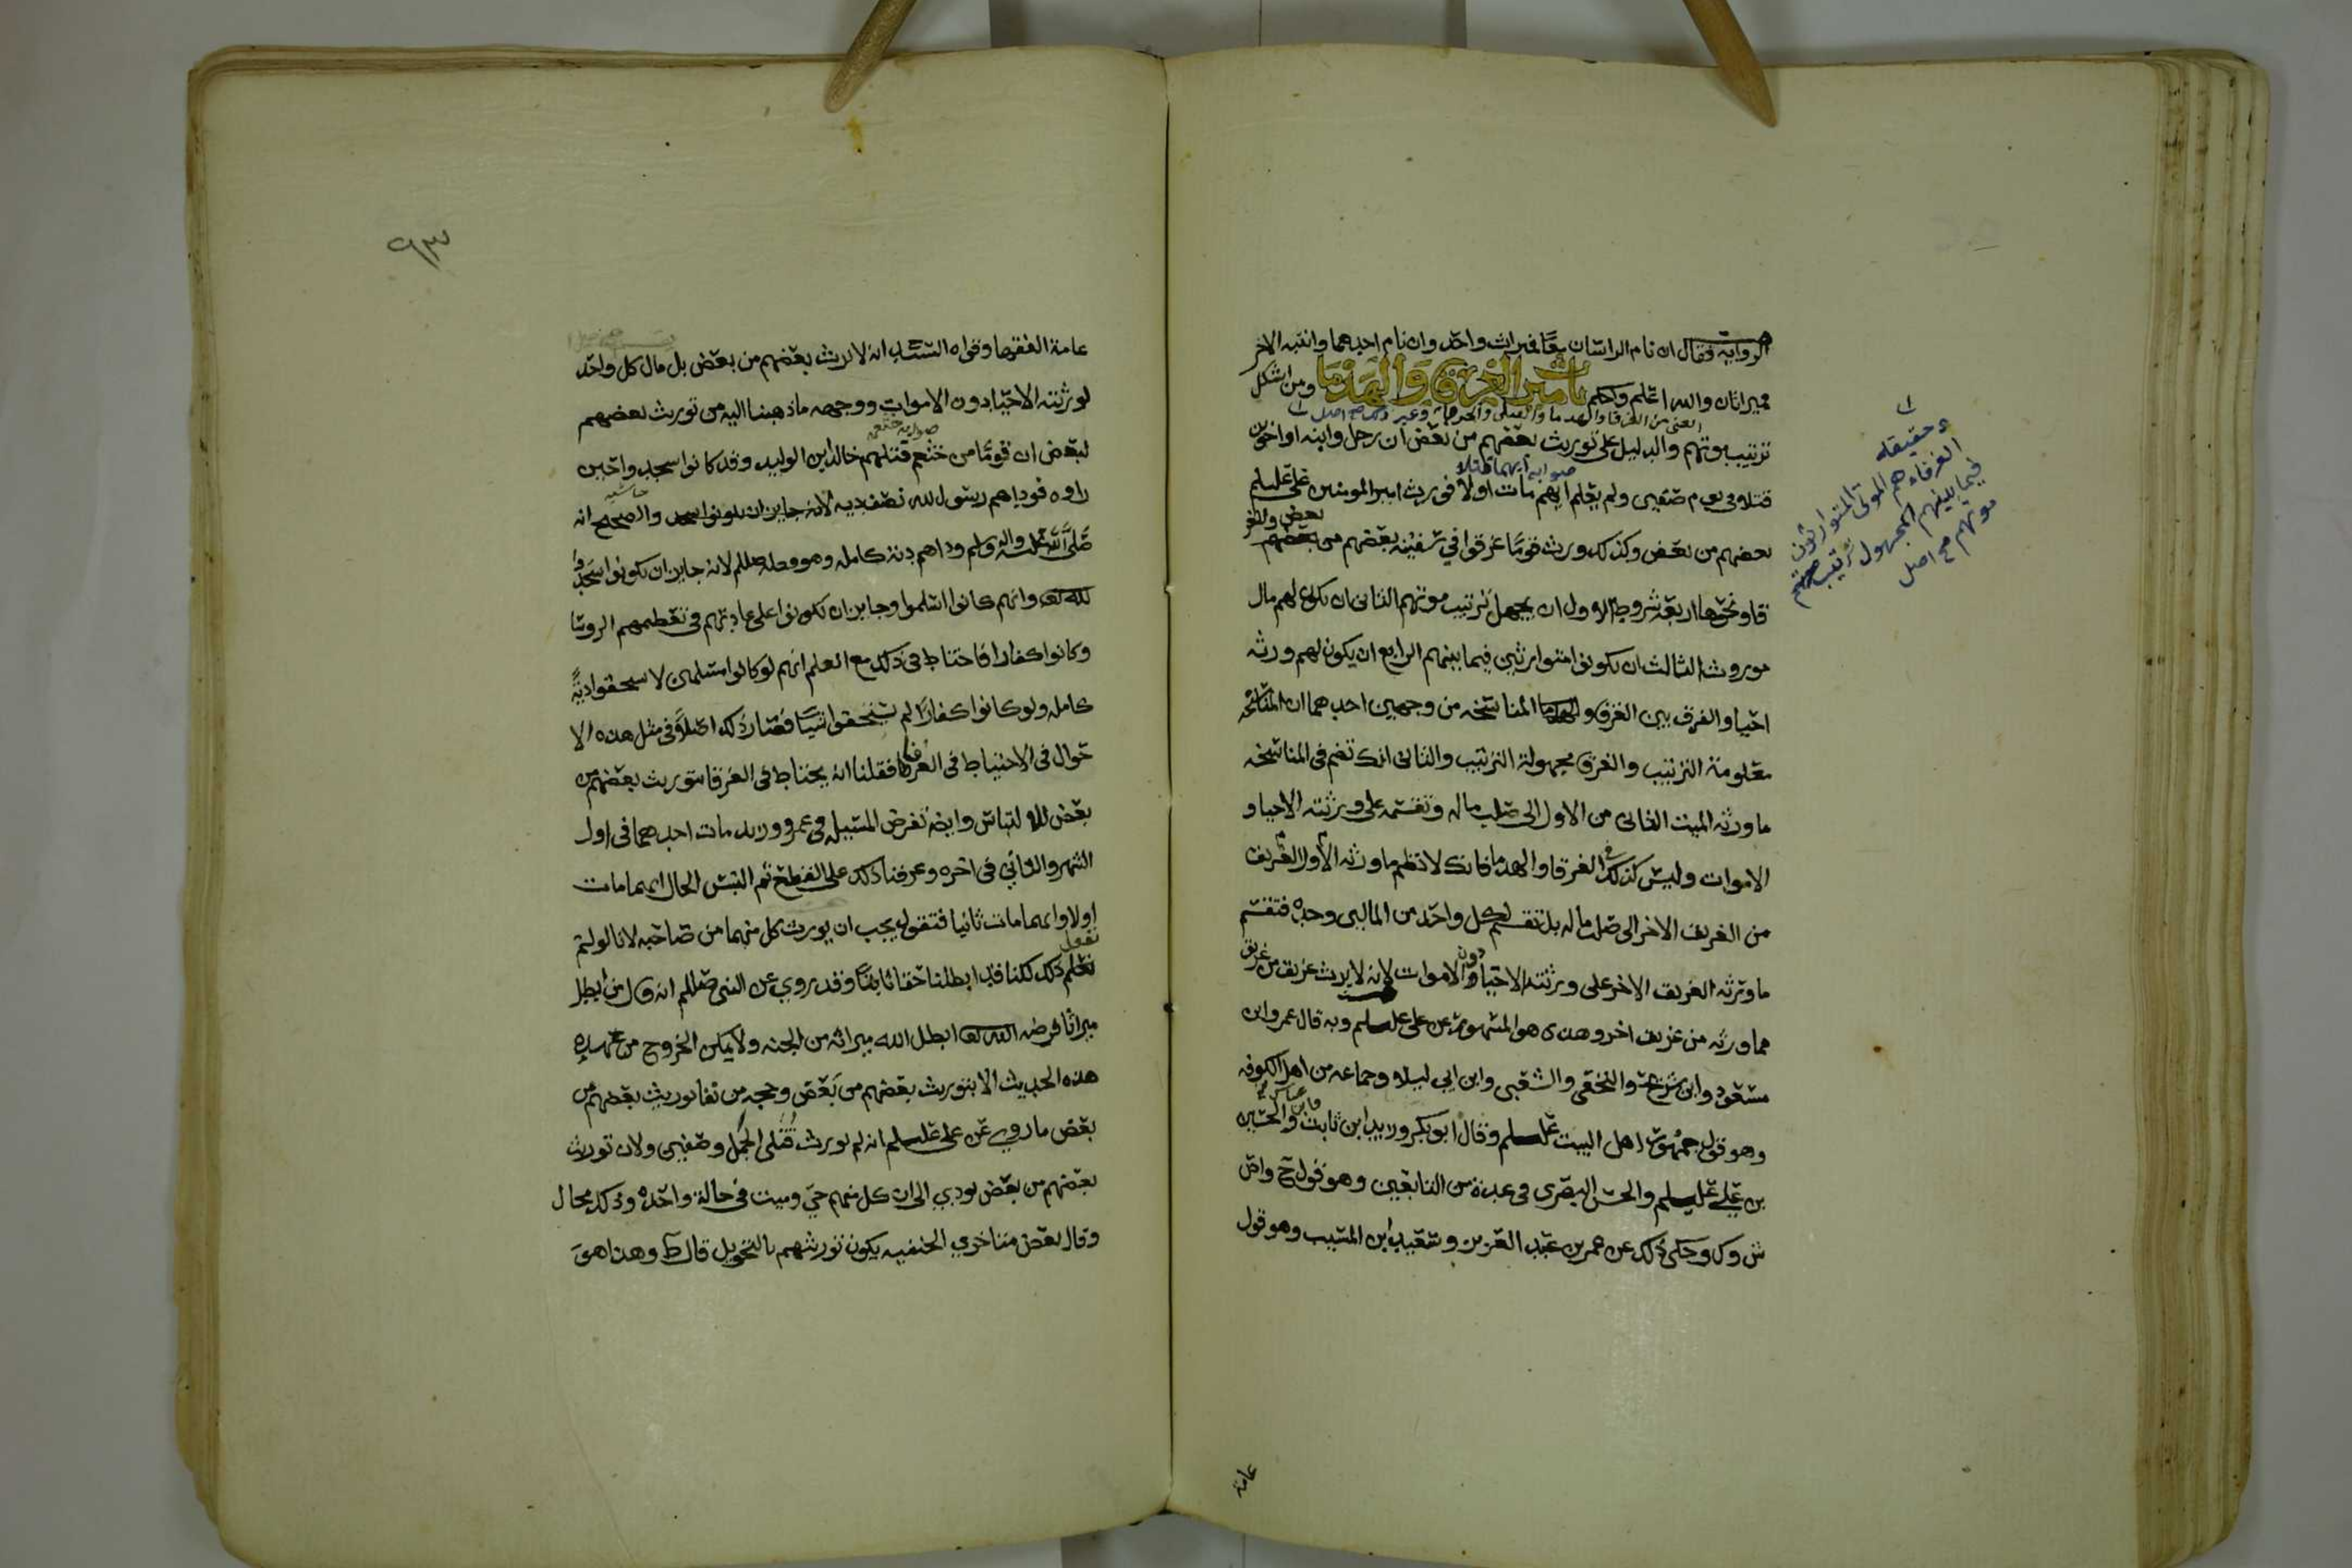 الرواية فقال ان نام الراسان معًا فميراث واحد وان نام احدهما وانتبه الاخر
فميراثان والله اعلم واحكم باب ميراث الغرقا والهدما ومن اشكل
اعنى من الغرقا والهدما والقتلى والحرقا وغير ذلك صح اصل
ترتيب موتهم والدليل على توريث بعضهم من بعض ان رجل وابنه او اخوين
صوابه ايهما قتلا
قتلا في يوم صفين ولم يعلم ايهم مات اولا فورث امير المومنين علي عليلم
بعضهم من بعض وكذلك ورث قومًا غرقوا في سفينه بعضهم من بعض وللغر
قا ونحوها اربعة شروط الاول ان يجهل ترتيب موتهم الثانى ان يكون لهم مال
موروث الثالث ان يكونوا متوارثين فيما بينهم الرابع ان يكون لهم ورثه
احيا والفرق بين الغرقا والهدما المناسخه من وجهين احدهما ان المناسخه
معلومة الترتيب والغرقا مجهولة الترتيب والثانى انك تضم فى المناسخه
ما ورثه الميت الثانى من الاول الى صلب ماله وتقسمه على ورثته الاحيا و
الاموات وليس كذلك في الغرقا والهدما فانك لا تظم ما ورثه الاول الغريق
من الغريق الاخر الى صلب ماله بل تقسم لكل واحد من المالين وحده فتقسم
ما ورثه الغريق الاخر على ورثته الاحيا دون الاموات لانه لا يرث غريق من غريق
مما ورثه من غريق اخر وهذا هو المشهور عن على عليلم وبه قال عمر وابن
مسعود وابن شريح والنخعى والشعبى وابن ابي ليلا وجماعه من اهل الكوفه
وابن عباس
وهو قول جمهور اهل البيت عليلم وقال ابو بكر وزيد ابن ثابت والحسين
بن علي عليلم والحسن البصرى في عدة من التابعين وهو قول ح واص
ش وك وحكى ذلك عن عمر بن عبد العزيز وسعيد ابن المسيب وهو قول
عامة
١
حقيقه
الغرقاء هم الموتى المتوارثون
فيما بينهم المجهول ترتيب
موتهم صح اصل
٩٣
عامة الفقها وقواه السيد انه لا يرث بعضهم من بعض بل مال كل واحد
لورثته الاحيا دون الاموات ووجه ما ذهبنا اليه من توريث بعضهم
صوابه خثعم
لبعض ان قومًا من خثعم قتلهم خالد ابن الوليد وقد كانوا سجدوا حين
حاشيه
راوه فوداهم رسول الله نصف ديه لانه جايز ان يكونوا سجد والصحيح انه
صلى الله عليه واله وسلم وداهم دية كامله وهو فعله صللم لانه جايز ان يكونوا سجدوا
لله تعالى وانهم كانوا اسلموا وجايز ان يكونوا على عادتهم فى تعظيمهم الروسا
وكانوا كفارا فاحتاط فى ذلك مع العلم انهم لو كانوا مسلمين لاستحقوا ديةً
كامله ولو كانوا كفارًا لم يستحقوا شيئًا فصار ذلك اصلاً فى مثل هذه الا
حوال فى الاحتياط فى الغرقا فقلنا انه يحتاط فى الغرقا بتوريث بعضهم من
بعض للالتباس وايضا نفرض المسيله في عمرو وزيد مات احدهما في اول
الشهر والثاني فى اخره وعرفنا ذلك على القطع ثم التبس الحال ايهما مات
اولا وايهما مات ثانيا فنقول يجب ان يورث كل منهما من صاحبه لانا لو لم
نقول
نعلم ذلك لكنا قد ابطلنا حقا ثابتًا وقد روي عن النبى صللم انه قال من ابطل
ميراثًا فرضه الله تعالى ابطل الله ميراثه من الجنه ولا يمكن الخروج من عهدة
هذه الحديث الا بتوريث بعضهم من بَعْض وحجه من نفا توريث بعضهم من
بعض ما روي عن على عليلم انه لم يورث قتلى الجمل وصفين ولان توريث
بعضهم من بعض يودي الى ان كل منهم حيّ وميت فى حالة واحده وذلك محال
وقال بعض متاخري الحنفيه يكون تورثهم بالتحويل قال ط وهذا هو